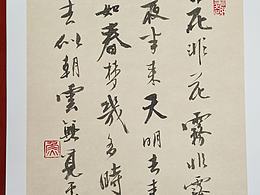 花非花霧非霧
夜半来天明去来
如春夢幾多時
去似朝雲無覓